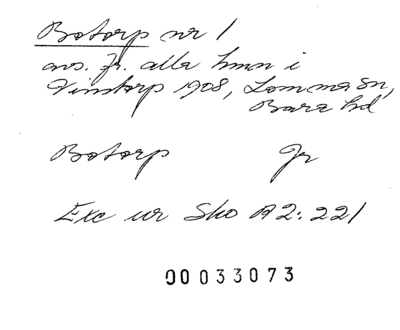 Botorp nr 1
avs. fr. alla hmn i
Vinstorp 1908, Lomma sn,
Bara hd
Botorp Jr
Exc ur Sko A2:221
00033073